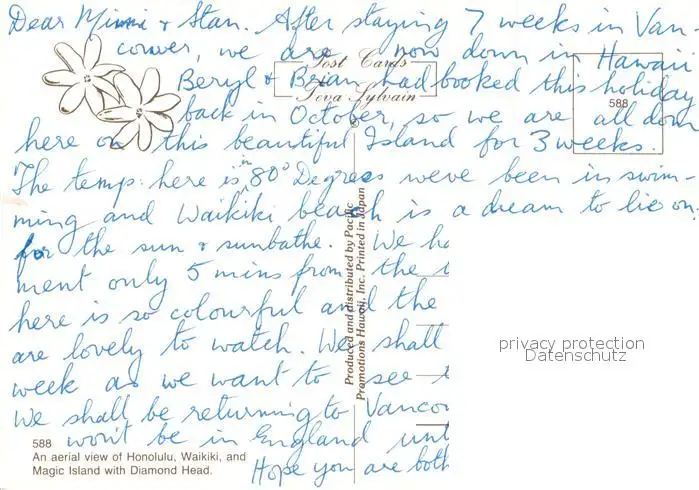 Dear Minni & Stan. After staying 7 weeks in Van-
couver, we are now down in Hawaii
Post Cards
Beryl & Brian had booked this holiday
Teva Sylvain
588
back in October, so we are all down
here on this beautiful Island for 3 weeks.
The temp: here is in 80° Degrees weve been in swim-
ming and Waikiki beach is a dream to lie on.
for the sun & sunbathe. We ha
ment only 5 mins from the
here is so colourful and the
are lovely to watch. We shall
week as we want to see
We shall be returning to Vancou
won't be in England unt
Hope you are both
Produced and distributed by Pacific
Promotions Hawaii, Inc. Printed in Japan
privacy protection
Datenschutz
588
An aerial view of Honolulu, Waikiki, and
Magic Island with Diamond Head.